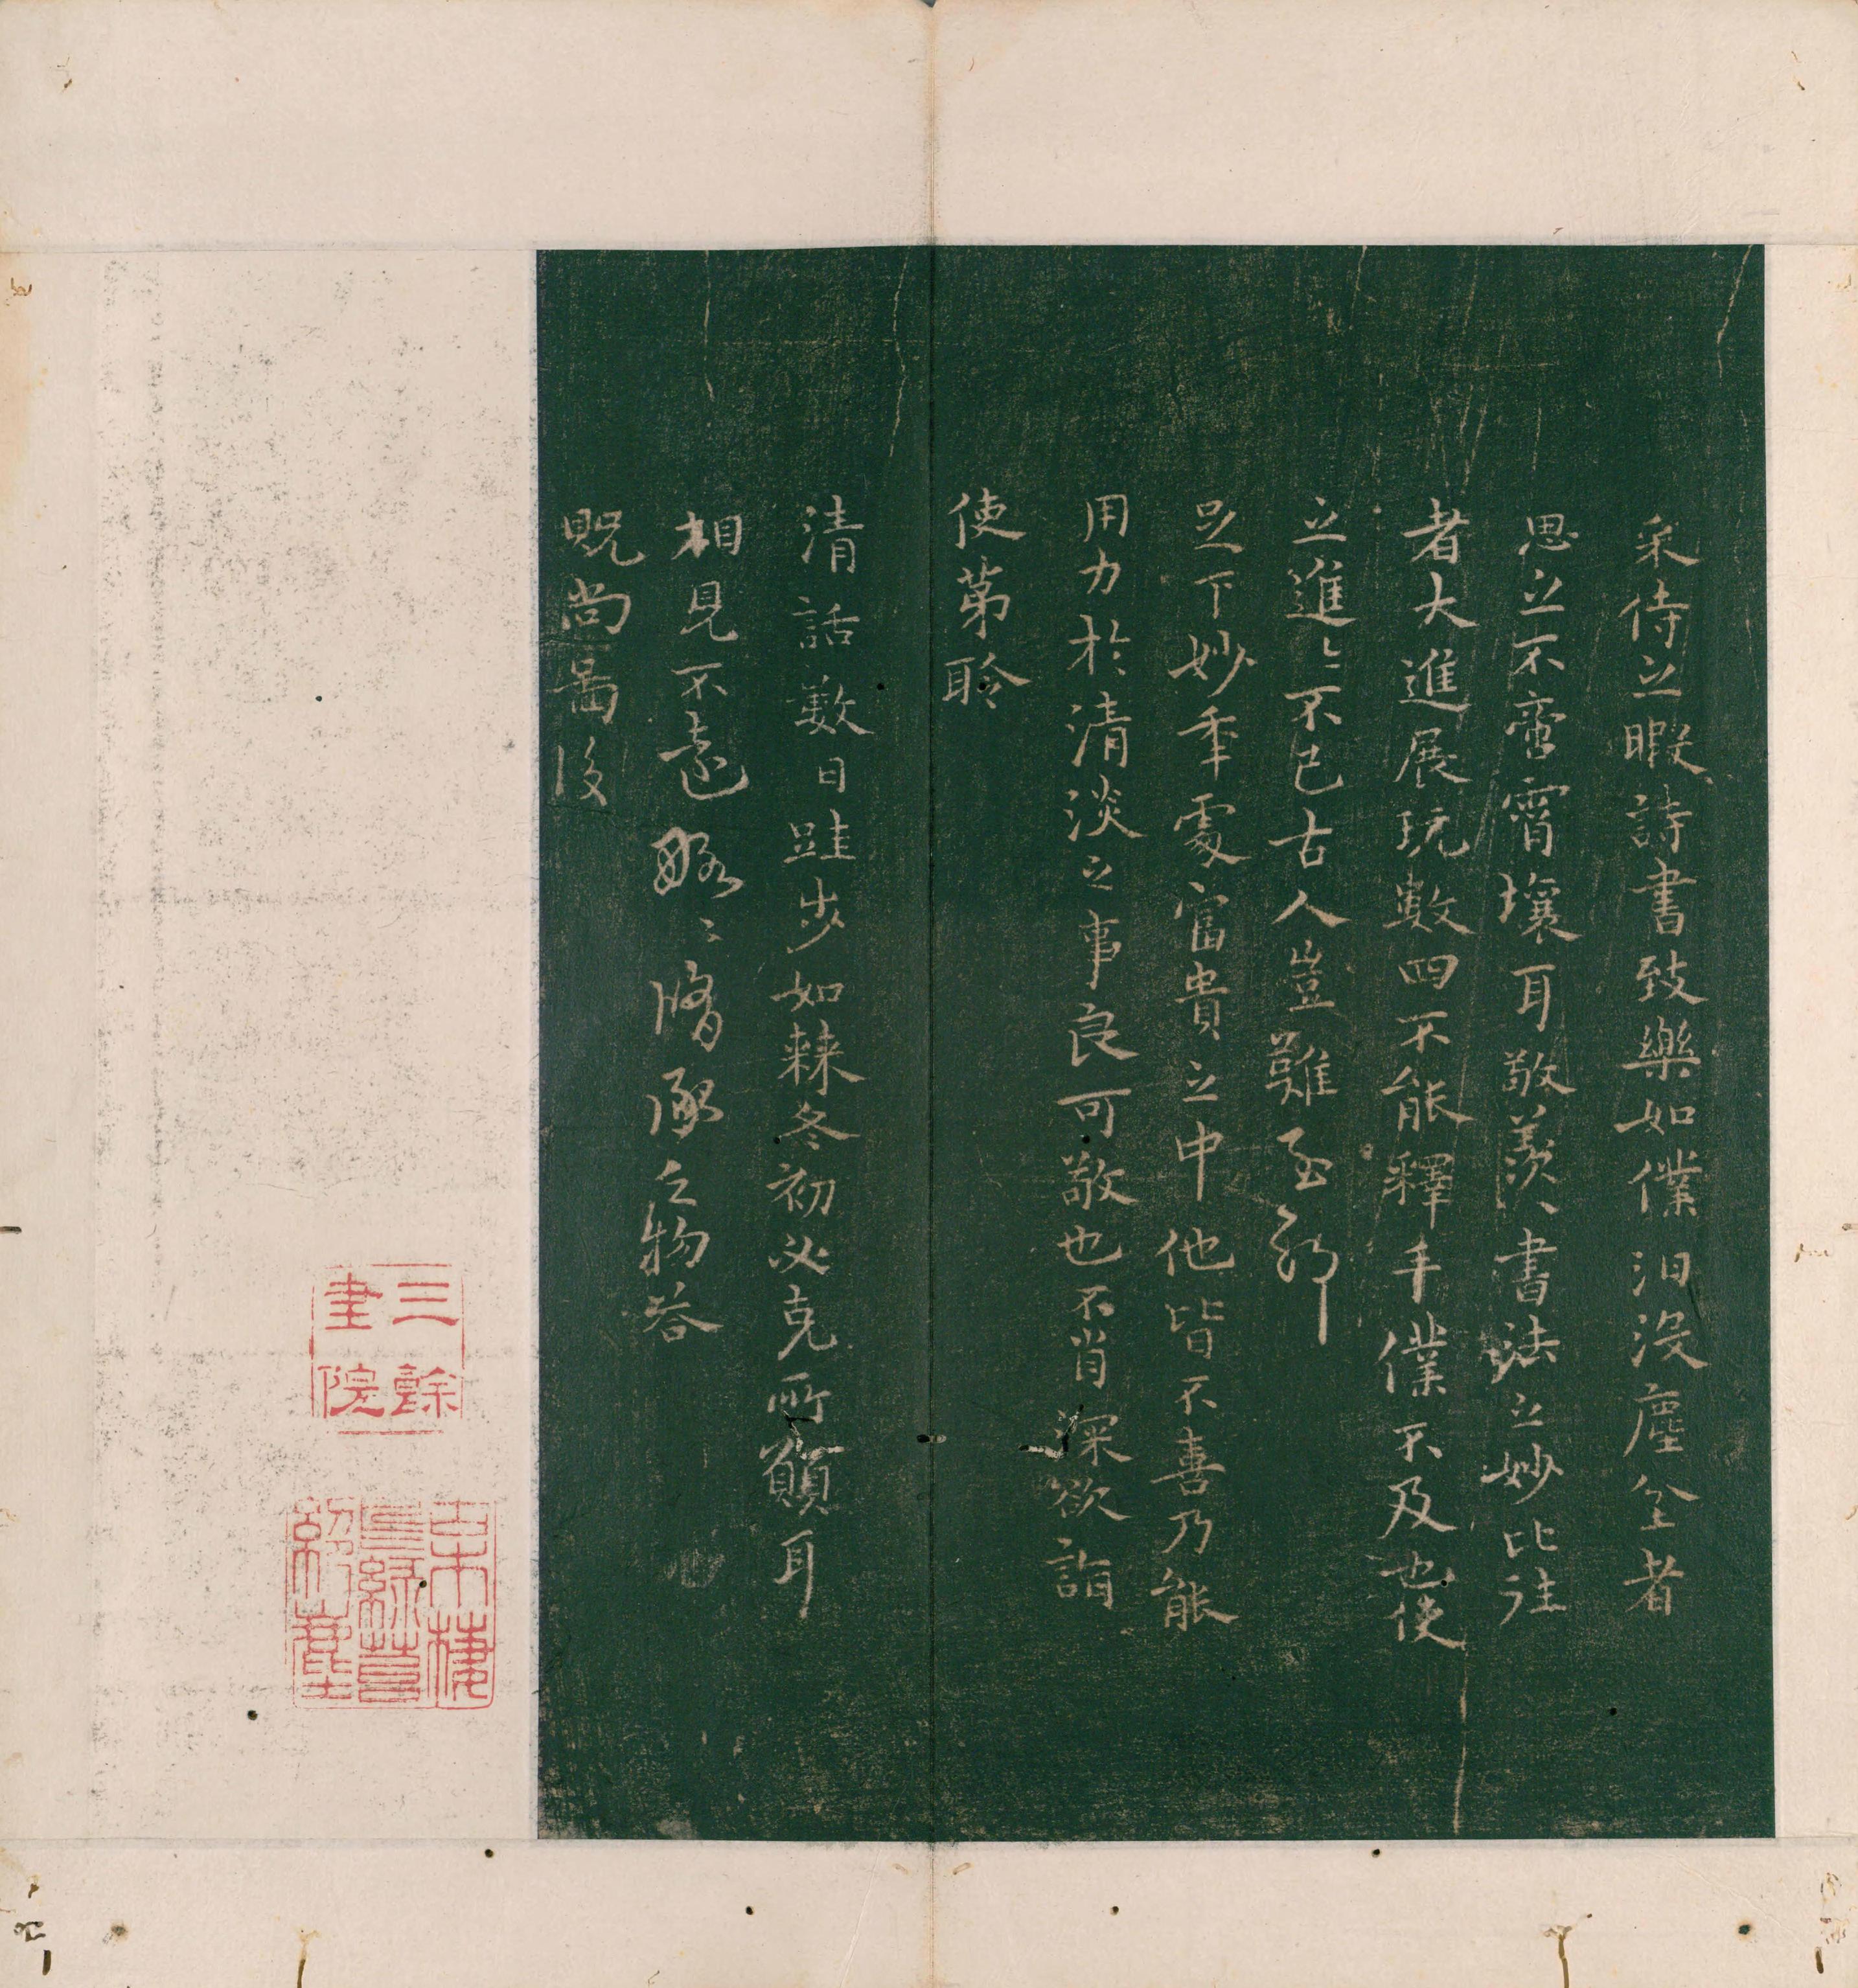 采侍之暇詩書致樂如僕汩没塵坌者
思之不啻霄壤耳敬羨〻書法之妙比往
者大進展玩數四不能釋手僕不及也使
之進〻不已古人豈難至邪
足下妙年處富貴之中他皆不喜乃能
用力於清淡之事良可敬也不肖深欲詣
使第聆
清話數日跬步如棘冬初必克所願耳
相見不遠
承之物答
貺尚圖後
三餘
書院